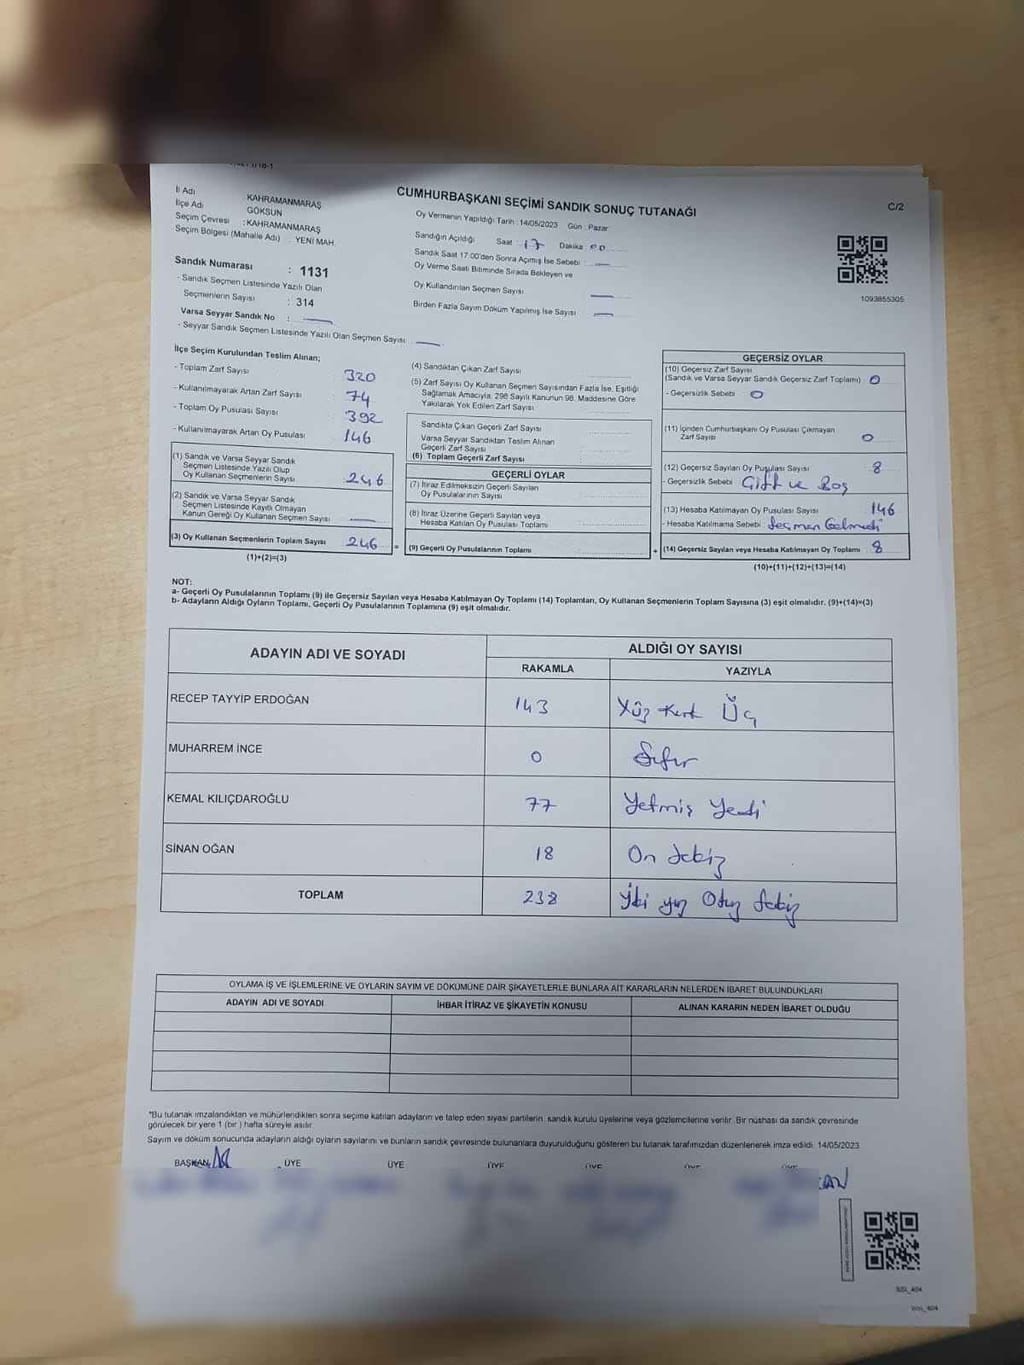 CUMHURBAŞKANI SEÇİMİ SANDIK SONUÇ TUTANAĞI
C/2
İl Adı KAHRAMANMARAŞ
İlçe Adı GÖKSUN
Seçim Çevresi : KAHRAMANMARAŞ
Seçim Bölgesi (Mahalle Adı) : YENİ MAH.
Oy Vermenin Yapıldığı Tarih : 14/05/2023 Gün : Pazar
Sandığın Açıldığı Saat 17 Dakika 00
Sandık Saat 17:00'den Sonra Açılmış İse Sebebi —
Oy Verme Saati Bitiminde Sırada Bekleyen ve
Oy Kullandırılan Seçmen Sayısı —
Birden Fazla Sayım Döküm Yapılmış İse Sayısı —
1093855305
Sandık Numarası : 1131
- Sandık Seçmen Listesinde Yazılı Olan
Seçmenlerin Sayısı : 314
Varsa Seyyar Sandık No : —
- Seyyar Sandık Seçmen Listesinde Yazılı Olan Seçmen Sayısı —
İlçe Seçim Kurulundan Teslim Alınan;
- Toplam Zarf Sayısı 320
- Kullanılmayarak Artan Zarf Sayısı 74
- Toplam Oy Pusulası Sayısı 392
- Kullanılmayarak Artan Oy Pusulası 146
(1) Sandık ve Varsa Seyyar Sandık
Seçmen Listesinde Yazılı Olup
Oy Kullanan Seçmenlerin Sayısı 246
(2) Sandık ve Varsa Seyyar Sandık
Seçmen Listesinde Kayıtlı Olmayan
Kanun Gereği Oy Kullanan Seçmen Sayısı —
(3) Oy Kullanan Seçmenlerin Toplam Sayısı 246
(1)+(2)=(3)
(4) Sandıktan Çıkan Zarf Sayısı
(5) Zarf Sayısı Oy Kullanan Seçmen Sayısından Fazla İse, Eşitliği
Sağlamak Amacıyla, 298 Sayılı Kanunun 98. Maddesine Göre
Yakılarak Yok Edilen Zarf Sayısı
Sandıkta Çıkan Geçerli Zarf Sayısı
Varsa Seyyar Sandıktan Teslim Alınan
Geçerli Zarf Sayısı
(6) Toplam Geçerli Zarf Sayısı
GEÇERLİ OYLAR
(7) İtiraz Edilmeksizin Geçerli Sayılan
Oy Pusulalarının Sayısı
(8) İtiraz Üzerine Geçerli Sayılan veya
Hesaba Katılan Oy Pusulası Toplamı
= (9) Geçerli Oy Pusulalarının Toplamı
GEÇERSİZ OYLAR
(10) Geçersiz Zarf Sayısı
(Sandık ve Varsa Seyyar Sandık Geçersiz Zarf Toplamı) 0
- Geçersizlik Sebebi 0
(11) İçinden Cumhurbaşkanı Oy Pusulası Çıkmayan
Zarf Sayısı 0
(12) Geçersiz Sayılan Oy Pusulası Sayısı 8
- Geçersizlik Sebebi Çift ve Boş
(13) Hesaba Katılmayan Oy Pusulası Sayısı 146
- Hesaba Katılmama Sebebi Seçmen Gelmedi
+ (14) Geçersiz Sayılan veya Hesaba Katılmayan Oy Toplamı 8
(10)+(11)+(12)+(13)=(14)
NOT:
a- Geçerli Oy Pusulalarının Toplamı (9) ile Geçersiz Sayılan veya Hesaba Katılmayan Oy Toplamı (14) Toplamları, Oy Kullanan Seçmenlerin Toplam Sayısına (3) eşit olmalıdır. (9)+(14)=(3)
b- Adayların Aldığı Oyların Toplamı, Geçerli Oy Pusulalarının Toplamına (9) eşit olmalıdır.
ADAYIN ADI VE SOYADI ALDIĞI OY SAYISI
RAKAMLA YAZIYLA
RECEP TAYYİP ERDOĞAN 143 Yüz Kırk Üç
MUHARREM İNCE 0 Sıfır
KEMAL KILIÇDAROĞLU 77 Yetmiş Yedi
SİNAN OĞAN 18 On Sekiz
TOPLAM 238 İki yüz Otuz Sekiz
OYLAMA İŞ VE İŞLEMLERİNE VE OYLARIN SAYIM VE DÖKÜMÜNE DAİR ŞİKAYETLERLE BUNLARA AİT KARARLARIN NELERDEN İBARET BULUNDUKLARI
ADAYIN ADI VE SOYADI İHBAR İTİRAZ VE ŞİKAYETİN KONUSU ALINAN KARARIN NEDEN İBARET OLDUĞU
*Bu tutanak imzalandıktan ve mühürlendikten sonra seçime katılan adayların ve talep eden siyasi partilerin sandık kurulu üyelerine veya gözlemcilerine verilir. Bir nüshası da sandık çevresinde
görülecek bir yere 1 (bir) hafta süreyle asılır.
Sayım ve döküm sonucunda adayların aldığı oyların sayılarını ve bunların sandık çevresinde bulunanlara duyurulduğunu gösteren bu tutanak tarafımızdan düzenlenerek imza edildi. 14/05/2023
BAŞKAN ÜYE ÜYE ÜYE ÜYE